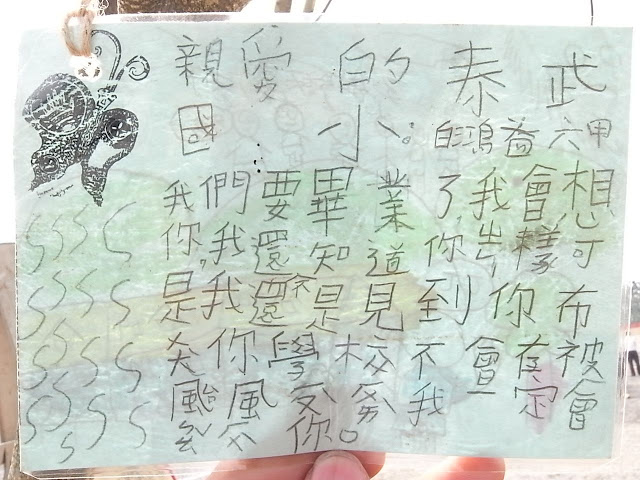 親愛的泰武
國小。白鴻益六甲
我們要畢業了,我會想
你,我還知道你樣可
是我還是見到你布
你學校不會有被
颱風我定會
你。